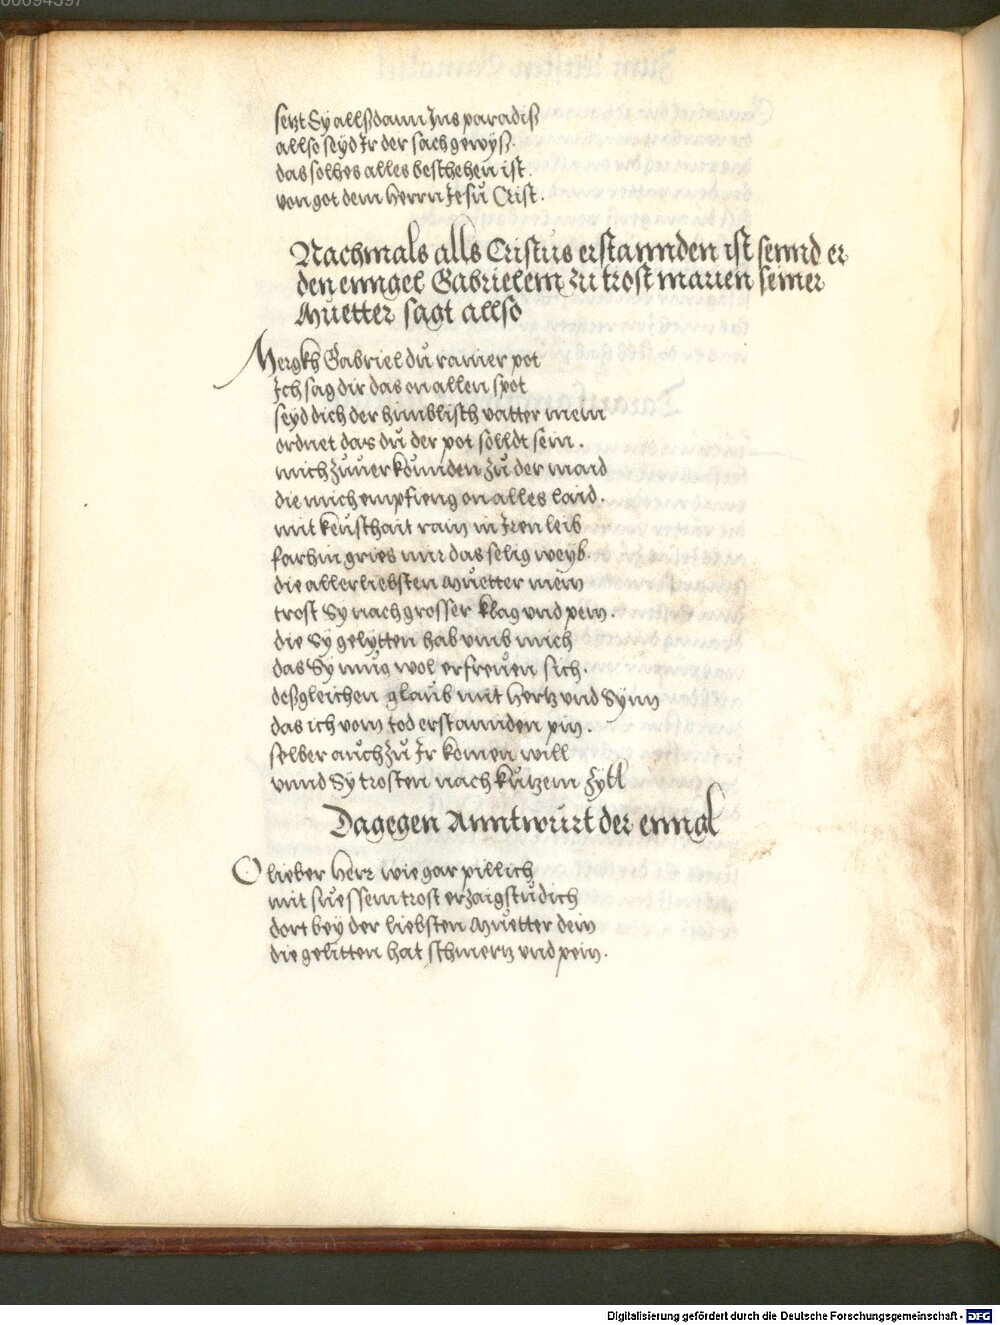 setzt Sy allßdann Ins paradiß
allso seyd Ir der sach gewyß.
das solhes alles beschehen ist.
von got dem herrn Jesu Crist.
Nachmals alls Cristus erstannden ist sennd er
den enngel Gabrielem zu trost marien seiner
Muetter sagt allso
Merckh Gabriel du rainer pot
Ich sag dir das on allen spot
seyd dich der himblisch vatter mein
ordnet das du der pot solldt sein.
mich zuuerkunnden zu der maid
die mich empfieng on alles laid.
mit keuschait rain in Iren leib
farhin gries mir das selig weyb.
die allerliebsten Muetter mein
trost Sy nach grosser klag vnd pein.
die Sy gelytten hab vmb mich
das Sy mug wol erfreuen sich.
deßgleichen glaub mit hertz vnd Synn
das ich vom tod erstannden pin.
selber auch zu Ir komen will
vnnd Sy trosten nach kurtzem zyll
Dagegen Anntwurt der enngl
O lieber herr wie gar pillich
mit suessem trost erzaigstu dich
dort bey der liebsten Muetter dein
die gelitten hat schmertz vnd pein.
Digitalisierung gefördert durch die Deutsche Forschungsgemeinschaft - DFG